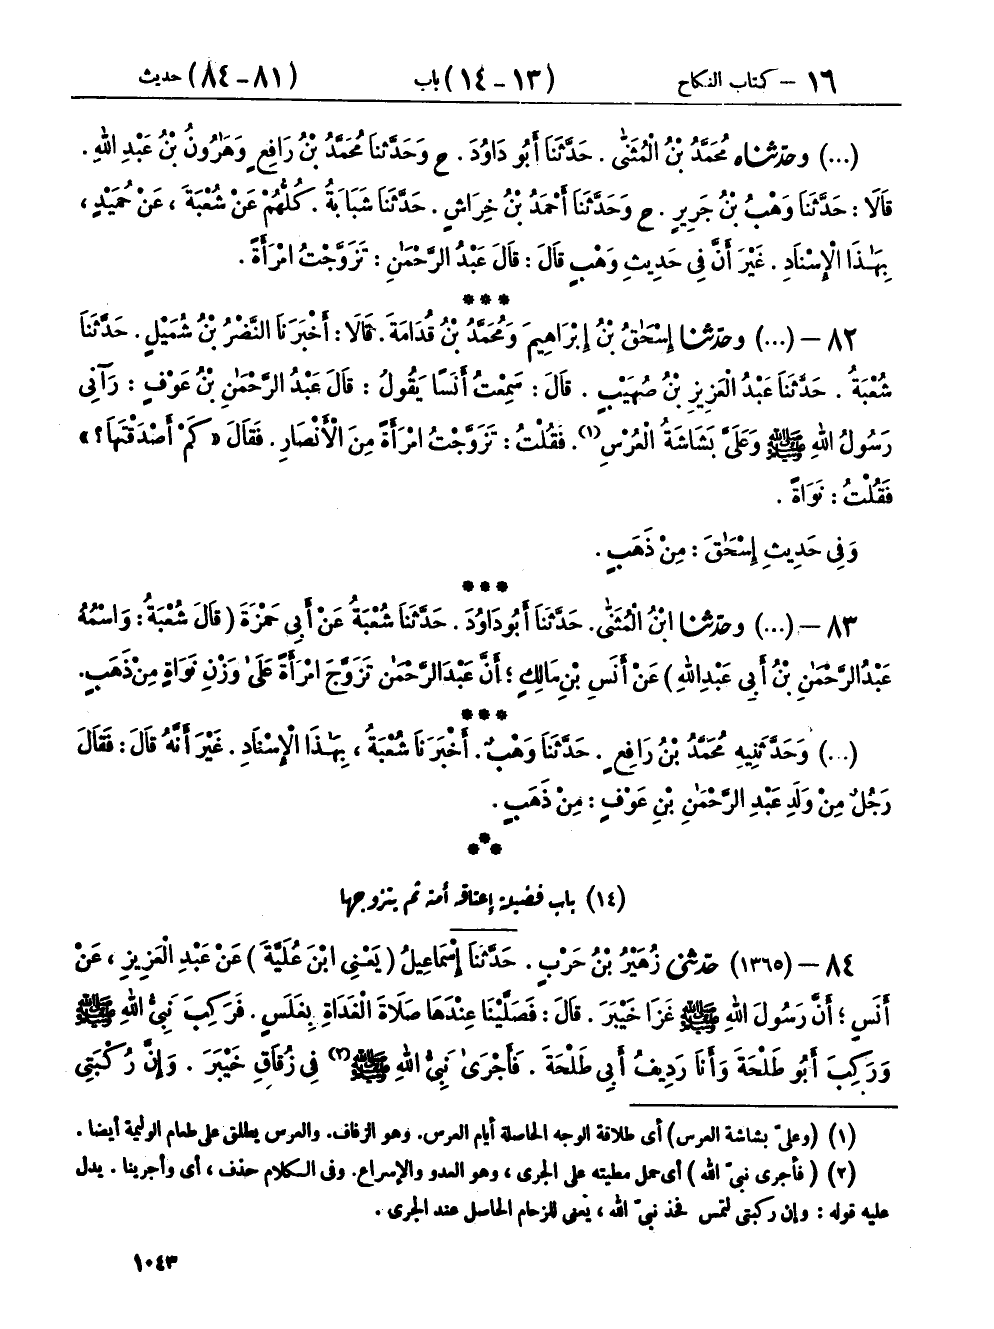 ١٦ – كتاب النكاح (١٣-١٤) باب (٨١-٨٤) حديث
(...) وحَدَّثَنَاهُ مُحَمَّدُ بْنُ الْمُثَنَّىٰ . حَدَّثَنَا أَبُو دَاوُدَ . ح وَحَدَّثَنَا مُحَمَّدُ بْنُ رَافِعٍ وَهَارُونُ بْنُ عَبْدِ اللهِ .
قَالَا : حَدَّثَنَا وَهْبُ بْنُ جَرِيرٍ . ح وَحَدَّثَنَا أَحْمَدُ بْنُ خِرَاشٍ . حَدَّثَنَا شَبَابَةُ . كُلُّهُمْ عَنْ شُعْبَةَ ، عَنْ حُمَيْدٍ ،
بِهَٰذَا الْإِسْنَادِ . غَيْرَ أَنَّ فِي حَدِيثِ وَهْبٍ قَالَ : قَالَ عَبْدُ الرَّحْمَٰنِ : تَزَوَّجْتُ امْرَأَةً .
***
٨٢ – (...) وحَدَّثَنَا إِسْحَٰقُ بْنُ إِبْرَاهِيمَ وَمُحَمَّدُ بْنُ قُدَامَةَ . قَالَا : أَخْبَرَنَا النَّضْرُ بْنُ شُمَيْلٍ . حَدَّثَنَا
شُعْبَةُ . حَدَّثَنَا عَبْدُ الْعَزِيزِ بْنُ صُهَيْبٍ . قَالَ : سَمِعْتُ أَنَسًا يَقُولُ : قَالَ عَبْدُ الرَّحْمَٰنِ بْنُ عَوْفٍ : رَآنِي
رَسُولُ اللهِ ﷺ وَعَلَيَّ بَشَاشَةُ الْعُرْسِ(١). فَقُلْتُ : تَزَوَّجْتُ امْرَأَةً مِنَ الْأَنْصَارِ . فَقَالَ « كَمْ أَصْدَقْتَهَا ؟ »
فَقُلْتُ : نَوَاةً .
وَفِي حَدِيثِ إِسْحَٰقَ : مِنْ ذَهَبٍ .
***
٨٣ – (...) وحَدَّثَنَا ابْنُ الْمُثَنَّىٰ . حَدَّثَنَا أَبُو دَاوُدَ . حَدَّثَنَا شُعْبَةُ عَنْ أَبِي حَمْزَةَ ( قَالَ شُعْبَةُ : وَاسْمُهُ
عَبْدُ الرَّحْمَٰنِ بْنُ أَبِي عَبْدِ اللهِ ) عَنْ أَنَسِ بْنِ مَالِكٍ ؛ أَنَّ عَبْدَ الرَّحْمَٰنِ تَزَوَّجَ امْرَأَةً عَلَىٰ وَزْنِ نَوَاةٍ مِنْ ذَهَبٍ.
***
(...) وَحَدَّثَنِيهِ مُحَمَّدُ بْنُ رَافِعٍ . حَدَّثَنَا وَهْبٌ . أَخْبَرَنَا شُعْبَةُ ، بِهَٰذَا الْإِسْنَادِ . غَيْرَ أَنَّهُ قَالَ : فَقَالَ
رَجُلٌ مِنْ وَلَدِ عَبْدِ الرَّحْمَٰنِ بْنِ عَوْفٍ : مِنْ ذَهَبٍ .
***
(١٤) باب فضيلة إعتاقه أمته ثم يتزوجها
٨٤ – (١٣٦٥) حَدَّثَنِي زُهَيْرُ بْنُ حَرْبٍ . حَدَّثَنَا إِسْمَاعِيلُ ( يَعْنِي ابْنَ عُلَيَّةَ ) عَنْ عَبْدِ الْعَزِيزِ ، عَنْ
أَنَسٍ ؛ أَنَّ رَسُولَ اللهِ ﷺ غَزَا خَيْبَرَ . قَالَ : فَصَلَّيْنَا عِنْدَهَا صَلَاةَ الْغَدَاةِ بِغَلَسٍ . فَرَكِبَ نَبِيُّ اللهِ ﷺ
وَرَكِبَ أَبُو طَلْحَةَ وَأَنَا رَدِيفُ أَبِي طَلْحَةَ . فَأَجْرَىٰ نَبِيُّ اللهِ ﷺ(٢) فِي زُقَاقِ خَيْبَرَ . وَإِنَّ رُكْبَتِي
(١) (وعليّ بشاشة العرس) أي طلاقة الوجه الحاصلة أيام العرس. وهو الزفاف. والعرس يطلق على طعام الوليمة أيضا .
(٢) ( فأجرى نبيّ الله ) أي حمل مطيته على الجرى ، وهو العدو والإسراع. وفى الكلام حذف ، أي وأجرينا . يدل
عليه قوله : وإن ركبتي لتمس فخذ نبيّ الله ، يعنى للزحام الحاصل عند الجرى .
١٠٤٣